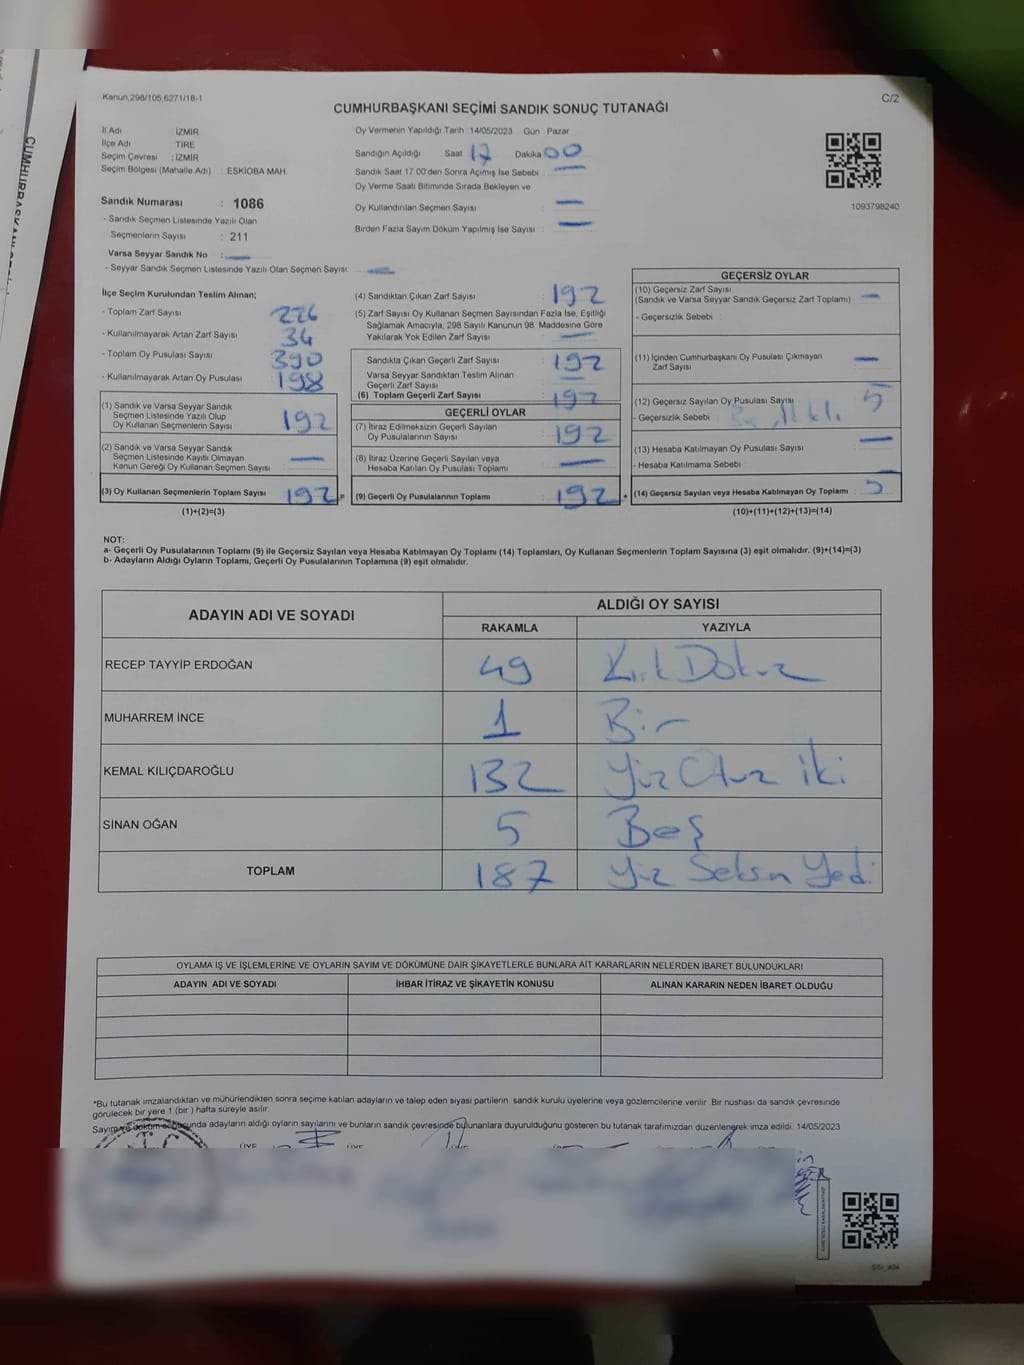 Kanun,298/105,6271/18-1
C/2
CUMHURBAŞKANI SEÇİMİ SANDIK SONUÇ TUTANAĞI
İl Adı İZMİR
İlçe Adı TİRE
Seçim Çevresi : İZMİR
Seçim Bölgesi (Mahalle Adı) : ESKİOBA MAH.
Sandık Numarası : 1086
- Sandık Seçmen Listesinde Yazılı Olan
Seçmenlerin Sayısı : 211
Varsa Seyyar Sandık No : —
- Seyyar Sandık Seçmen Listesinde Yazılı Olan Seçmen Sayısı: —
Oy Vermenin Yapıldığı Tarih 14/05/2023 Gün Pazar
Sandığın Açıldığı Saat 17 Dakika 00
Sandık Saat 17.00'den Sonra Açımış İse Sebebi : —
Oy Verme Saati Bitiminde Sırada Bekleyen ve
Oy Kullandırılan Seçmen Sayısı : —
Birden Fazla Sayım Döküm Yapılmış İse Sayısı : —
1093798240
İlçe Seçim Kurulundan Teslim Alınan;
- Toplam Zarf Sayısı : 226
- Kullanılmayarak Artan Zarf Sayısı : 34
- Toplam Oy Pusulası Sayısı : 390
- Kullanılmayarak Artan Oy Pusulası : 198
(1) Sandık ve Varsa Seyyar Sandık
Seçmen Listesinde Yazılı Olup
Oy Kullanan Seçmenlerin Sayısı : 192
(2) Sandık ve Varsa Seyyar Sandık
Seçmen Listesinde Kayıtlı Olmayan
Kanun Gereği Oy Kullanan Seçmen Sayısı : —
(3) Oy Kullanan Seçmenlerin Toplam Sayısı : 192
(1)+(2)=(3)
(4) Sandıktan Çıkan Zarf Sayısı : 192
(5) Zarf Sayısı Oy Kullanan Seçmen Sayısından Fazla İse, Eşitliği
Sağlamak Amacıyla, 298 Sayılı Kanunun 98. Maddesine Göre
Yakılarak Yok Edilen Zarf Sayısı : —
Sandıkta Çıkan Geçerli Zarf Sayısı : 192
Varsa Seyyar Sandıktan Teslim Alınan
Geçerli Zarf Sayısı : —
(6) Toplam Geçerli Zarf Sayısı : 192
GEÇERLİ OYLAR
(7) İtiraz Edilmeksizin Geçerli Sayılan
Oy Pusulalarının Sayısı : 192
(8) İtiraz Üzerine Geçerli Sayılan veya
Hesaba Katılan Oy Pusulası Toplamı : —
(9) Geçerli Oy Pusulalarının Toplamı : 192
GEÇERSİZ OYLAR
(10) Geçersiz Zarf Sayısı : —
(Sandık ve Varsa Seyyar Sandık Geçersiz Zarf Toplamı)
- Geçersizlik Sebebi :
(11) İçinden Cumhurbaşkanı Oy Pusulası Çıkmayan
Zarf Sayısı : —
(12) Geçersiz Sayılan Oy Pusulası Sayısı : 5
- Geçersizlik Sebebi :
(13) Hesaba Katılmayan Oy Pusulası Sayısı : —
- Hesaba Katılmama Sebebi : —
(14) Geçersiz Sayılan veya Hesaba Katılmayan Oy Toplamı : 5
(10)+(11)+(12)+(13)=(14)
NOT:
a- Geçerli Oy Pusulalarının Toplamı (9) ile Geçersiz Sayılan veya Hesaba Katılmayan Oy Toplamı (14) Toplamları, Oy Kullanan Seçmenlerin Toplam Sayısına (3) eşit olmalıdır. (9)+(14)=(3)
b- Adayların Aldığı Oyların Toplamı, Geçerli Oy Pusulalarının Toplamına (9) eşit olmalıdır.
ADAYIN ADI VE SOYADI ALDIĞI OY SAYISI
RAKAMLA YAZIYLA
RECEP TAYYİP ERDOĞAN 49 Kırk Dokuz
MUHARREM İNCE 1 Bir
KEMAL KILIÇDAROĞLU 132 Yüz Otuz iki
SİNAN OĞAN 5 Beş
TOPLAM 187 Yüz Seksen Yedi
OYLAMA İŞ VE İŞLEMLERİNE VE OYLARIN SAYIM VE DÖKÜMÜNE DAİR ŞİKAYETLERLE BUNLARA AİT KARARLARIN NELERDEN İBARET BULUNDUKLARI
ADAYIN ADI VE SOYADI İHBAR İTİRAZ VE ŞİKAYETİN KONUSU ALINAN KARARIN NEDEN İBARET OLDUĞU
*Bu tutanak imzalandıktan ve mühürlendikten sonra seçime katılan adayların ve talep eden siyasi partilerin sandık kurulu üyelerine veya gözlemcilerine verilir. Bir nüshası da sandık çevresinde
görülecek bir yere 1 (bir) hafta süreyle asılır.
Sayım ve döküm sonucunda adayların aldığı oyların sayılarını ve bunların sandık çevresinde bulunanlara duyurulduğunu gösteren bu tutanak tarafımızdan düzenlenerek imza edildi. 14/05/2023